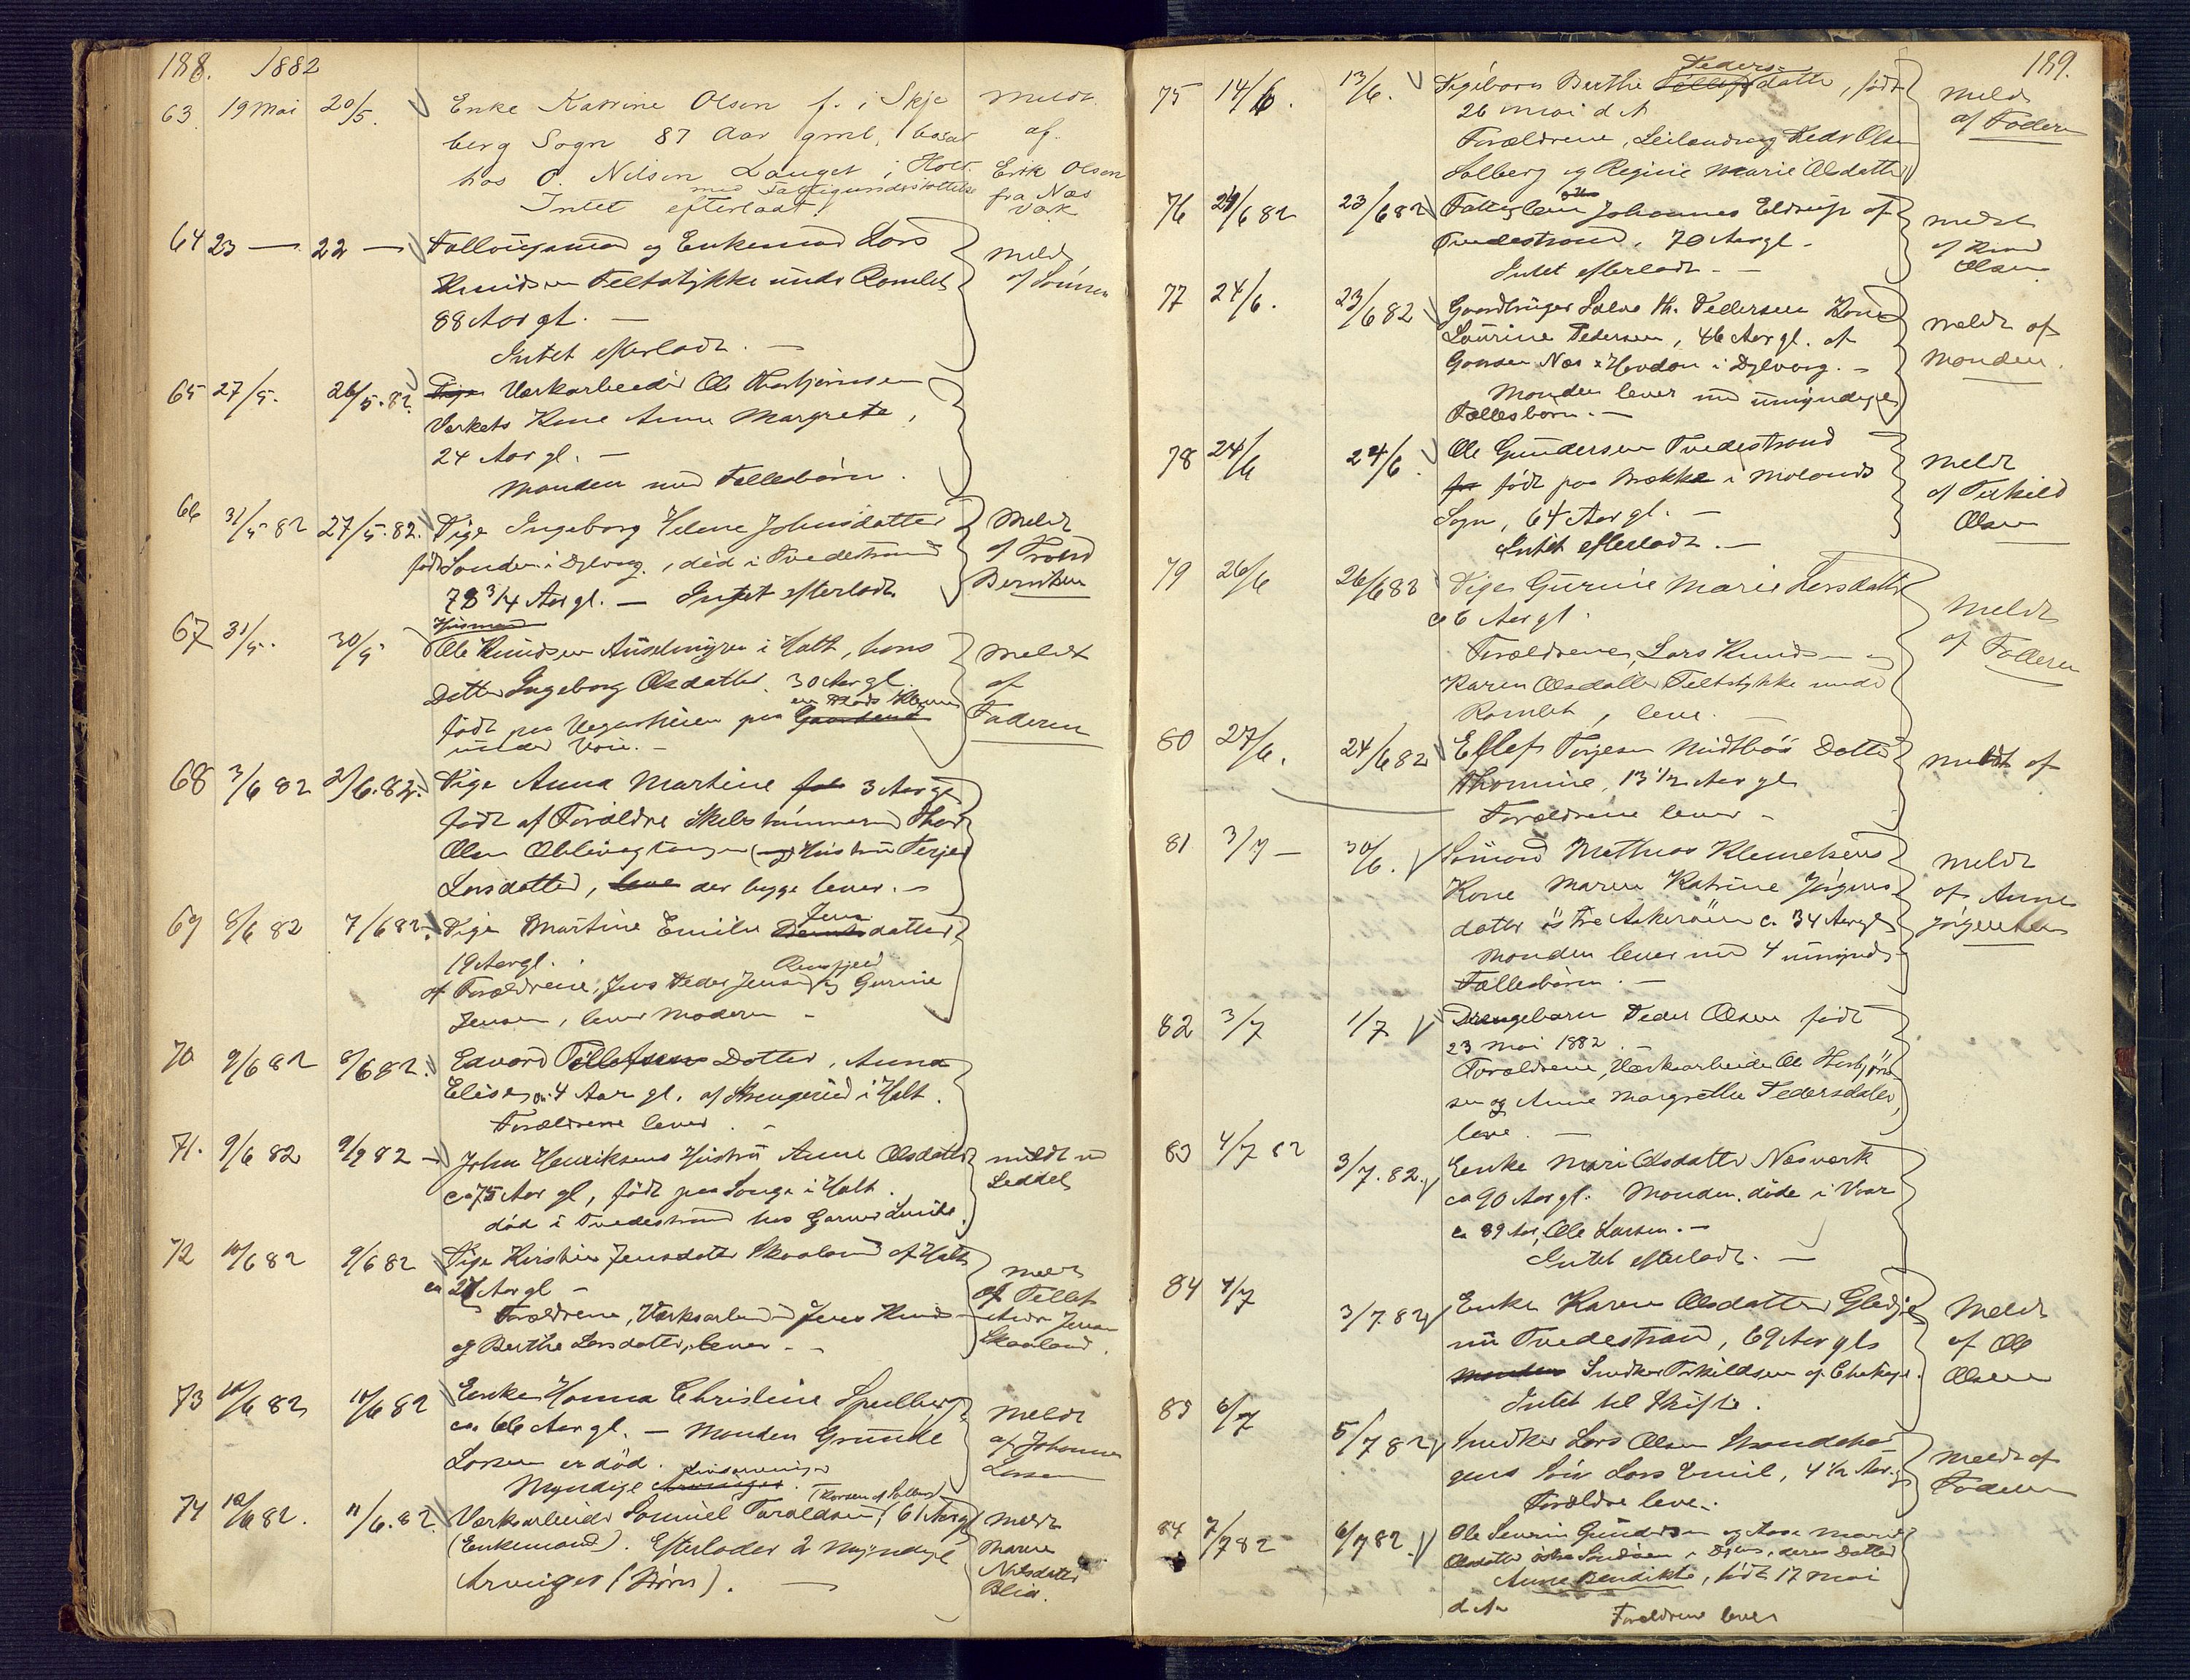 188. 1882
63. 19 Mai 20/5. Enke Katrine Olsen f. i Skje Meldt
berg Sogn 87 Aar gml, bosat af
hos O. Nilsen Langet i Holt. Erik Olsen
med Fattigunderstøttelse fra Næs
Intet efterladt. Værk
64 23 — 22 — Follougsmand og Enkemand Lars Meldt
Knudsen Feltstykke under Romlet af Sønnen
88 Aar gl. —
Intet efterladt. —
65 27/5. 26/5.82. Pige Værkarbeider Ole Thorbjørnsen
Værkets Kone Anne Margrete,
24 Aar gl. —
Manden med Fællesbørn.
66 31/5 82 27/5.82. Pige Ingeborg Helene Johnsdatter Meldt
født Songe i Dybvag, død i Tvedestrand af Trond
78 3/4 Aar gl. — Intet efterladt Berntsen
Husmand
67 31/5. 30/5 Ole Knudsen Auselmyren i Holt, hans Meldt
Datter Ingeborg Olsdatter. 30 Aar gl. af
en Plads
født paa Vegarheien paa Gaardene Faderen
under Voie. —
68 3/6 82 2/6.82. Pige Anna Martine 3 Aar gl
født af Forældre Skibstømmermand Thor
Olsen og Hustru Terjer
Larsdatter, leve der begge lever. —
69 8/6 82 7/6 82. Pige Martine Emilie Jens datter
19 Aar gl.
af Forældrene, Jens Peder Jensen og Gurine
Jensen, lever Moderen —
70 9/6 82 8/6 82. Edvard Tellefsens Datter, Anna
Elise, ca. 4 Aar gl. af Strengereid i Holt.
Forældrene lever. —
71. 9/6 82 9/6 82 — John Henriksens Hustru Anne Olsdatter meldt v
ca 75 Aar gl, født paa Songe i Holt. Seddel
død i Tvedestrand hos Garver Smith.
72 10/6 82 9/6 82 Pige Kirstine Jensdatter Skaaland af Holt Meldt
ca 27 Aar gl — af Tellef
Forældrene, Værksarbeider Jens Knudsen Jensen
og Berthe Larsdatter, lever. — Skaaland.
73 10/6 82 10/6 82 Enke Hanna Christine Spulberg Meldt
ca 66 Aar gl. — Manden Grunde af Johannes
Larsen er død. Larsen
Myndige Livsarvinger.
74 12/6 82. 11/6.82. Værksarbeider Samuel Taraldsen, 61 Aar gl Meldt
(Enkemand). Efterlader 2 myndige Maren
Arvinger (Børn). — Nilsdatter
Blia.
189.
Peders-
75 14/6. 13/6. Pigebarn Berthe Tellefsdatter, født Meldt
26 Mai d A af Faderen
Forældrene, Leilænding Peder Olsen
Solberg og Regine Marie Olsdatter
76 24/6 82 23/6 82 Fattiglem Johannes Eldrup af meldt
Tvedestrand, 70 Aar gl. — af Knud
Intet efterladt. — Olsen
77 24/6. 23/6 82 Gaardbruger Salve Th. Pedersens Kone Meldt af
Laurine Pedersen, 46 Aar gl. af Manden.
Goosen Næs x Hovdan i Dybvag. —
Manden lever med umyndige
Fællesbørn. —
78 24/6 24/6. Ole Gundersen Tvedestrand Meldt
født paa Brække i Molands af Terkild
Sogn, 64 Aar gl. — Olsen
Intet efterladt. —
79 26/6 26/6 82 Pige Gurine Marie Larsdatter Meldt
ca 6 Aar gl. af Faderen
Forældrene, Lars Knudsen og
Karen Olsdatter Feltstykke under
Romlet, leve.
80 27/6. 24/6 82 Ellef Terjesen Midtbøs Datter meldt af
Thomine, 13 1/2 Aar gl
Forældrene lever. —
81 3/7 — 30/6. Sømand Mathias Klemetsens Meldt
Kone Maren Katrine Jørgens af Anne
datter østre Askerøen c. 34 Aar gl Jørgensen
Manden lever med 4 umynd.
Fællesbørn. —
82 3/7 1/7 Drengebarn Peder Olsen født
23 Mai 1882. —
Forældrene, Værksarbeider Ole Thorbjørn
sen og Anne Margrethe Pedersdatter,
leve. —
83 4/7 82 3/7.82. Enke Mari Olsdatter Næsværk
ca 90 Aar gl. Manden døde i Vaar
ca 89 Aar, Ole Larsen. —
Intet efterladt. —
84 4/7 3/7.82 Enke Karen Olsdatter Gledje Meldt
nu Tvedestrand, 69 Aar gl af Ole
Manden Snedker Terkildsen af Olsen
Intet til Skifte.
85 6/7 5/7 82 Snedker Lars Olsen Strandska
gens Søn Lars Emil, 4 1/2 Aar. gl Meldt af
Forældre leve. Faderen
84 7/7 82 6/7 82. Ole Severin Gundersen og Aase Marie
Olsdatter østre Sandøen i Dybv., deres Datter
Anne Bendikte, født 17 Mai
d A
Forældrene lever